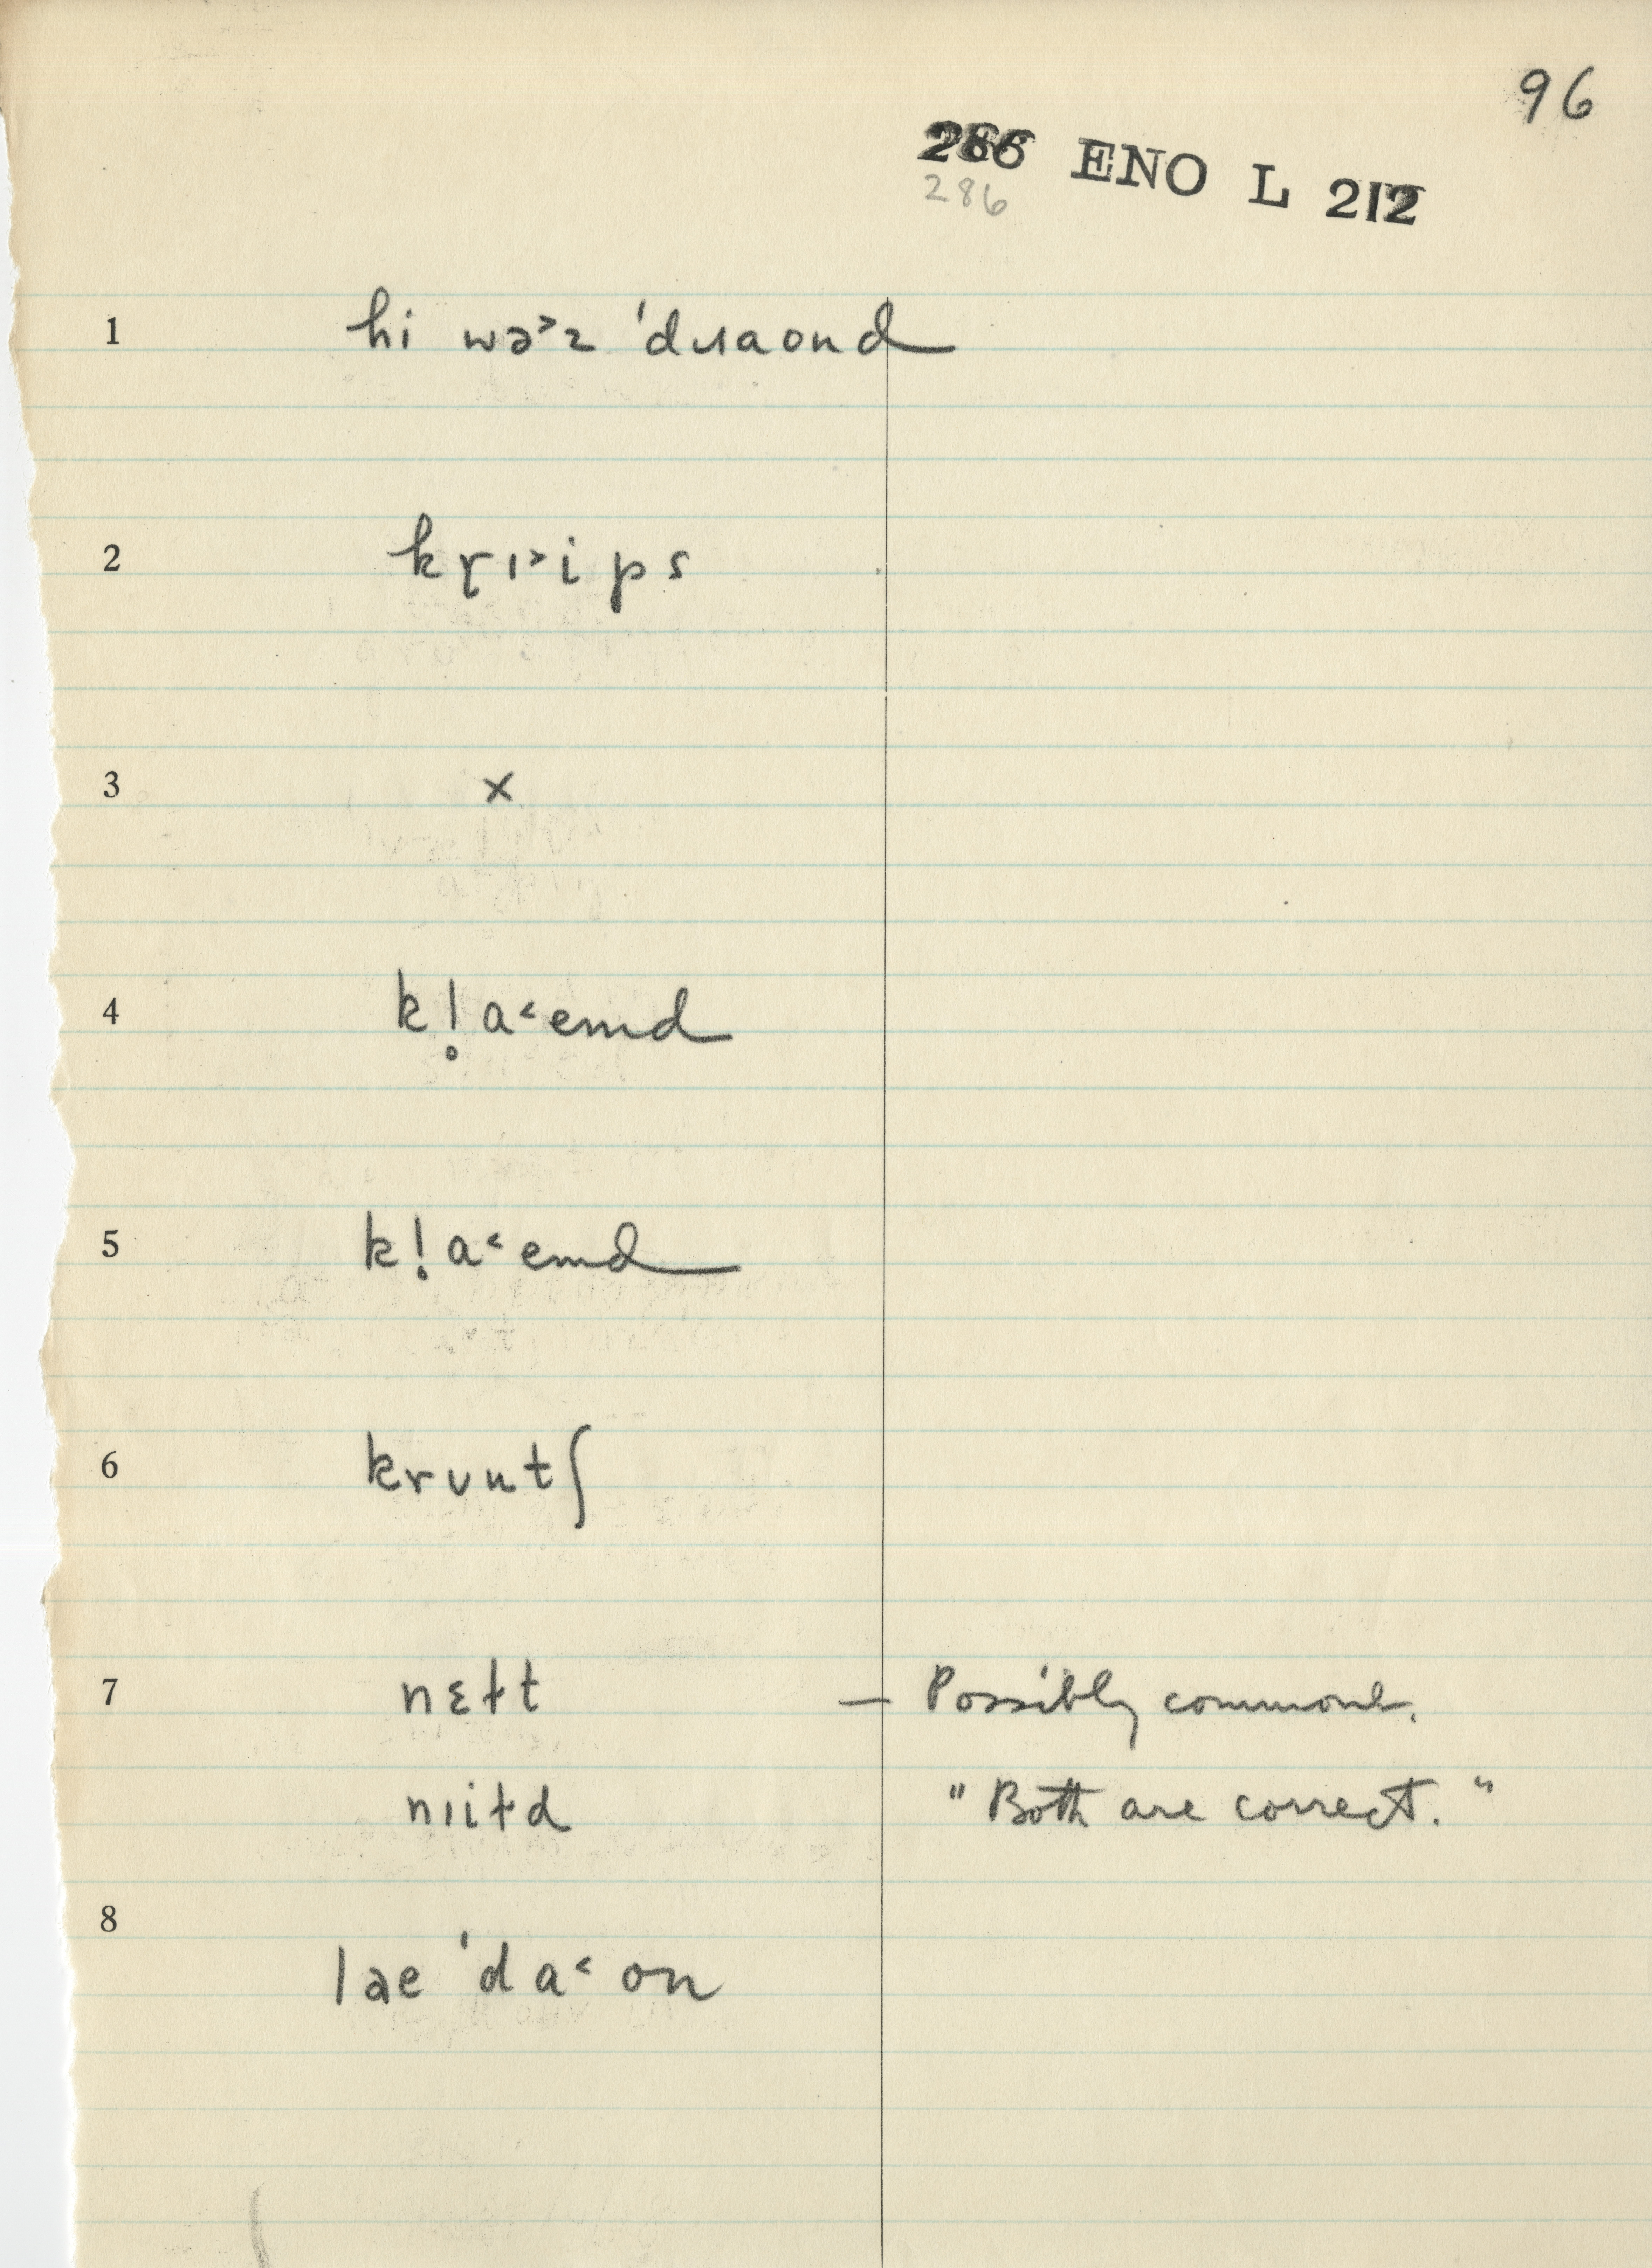 96
286 ENO L 212
286
1 hi wə˃z ˈdɹaond
2 kɼɪ˃ips
3 x
4 k!̥a˂emd
5 k!̣a˂emd
6 krʋntʃ
7 nɛƚt — Possibly commoner.
nɪiƚd "Both are correct."
8 lɘe ˈda˂on